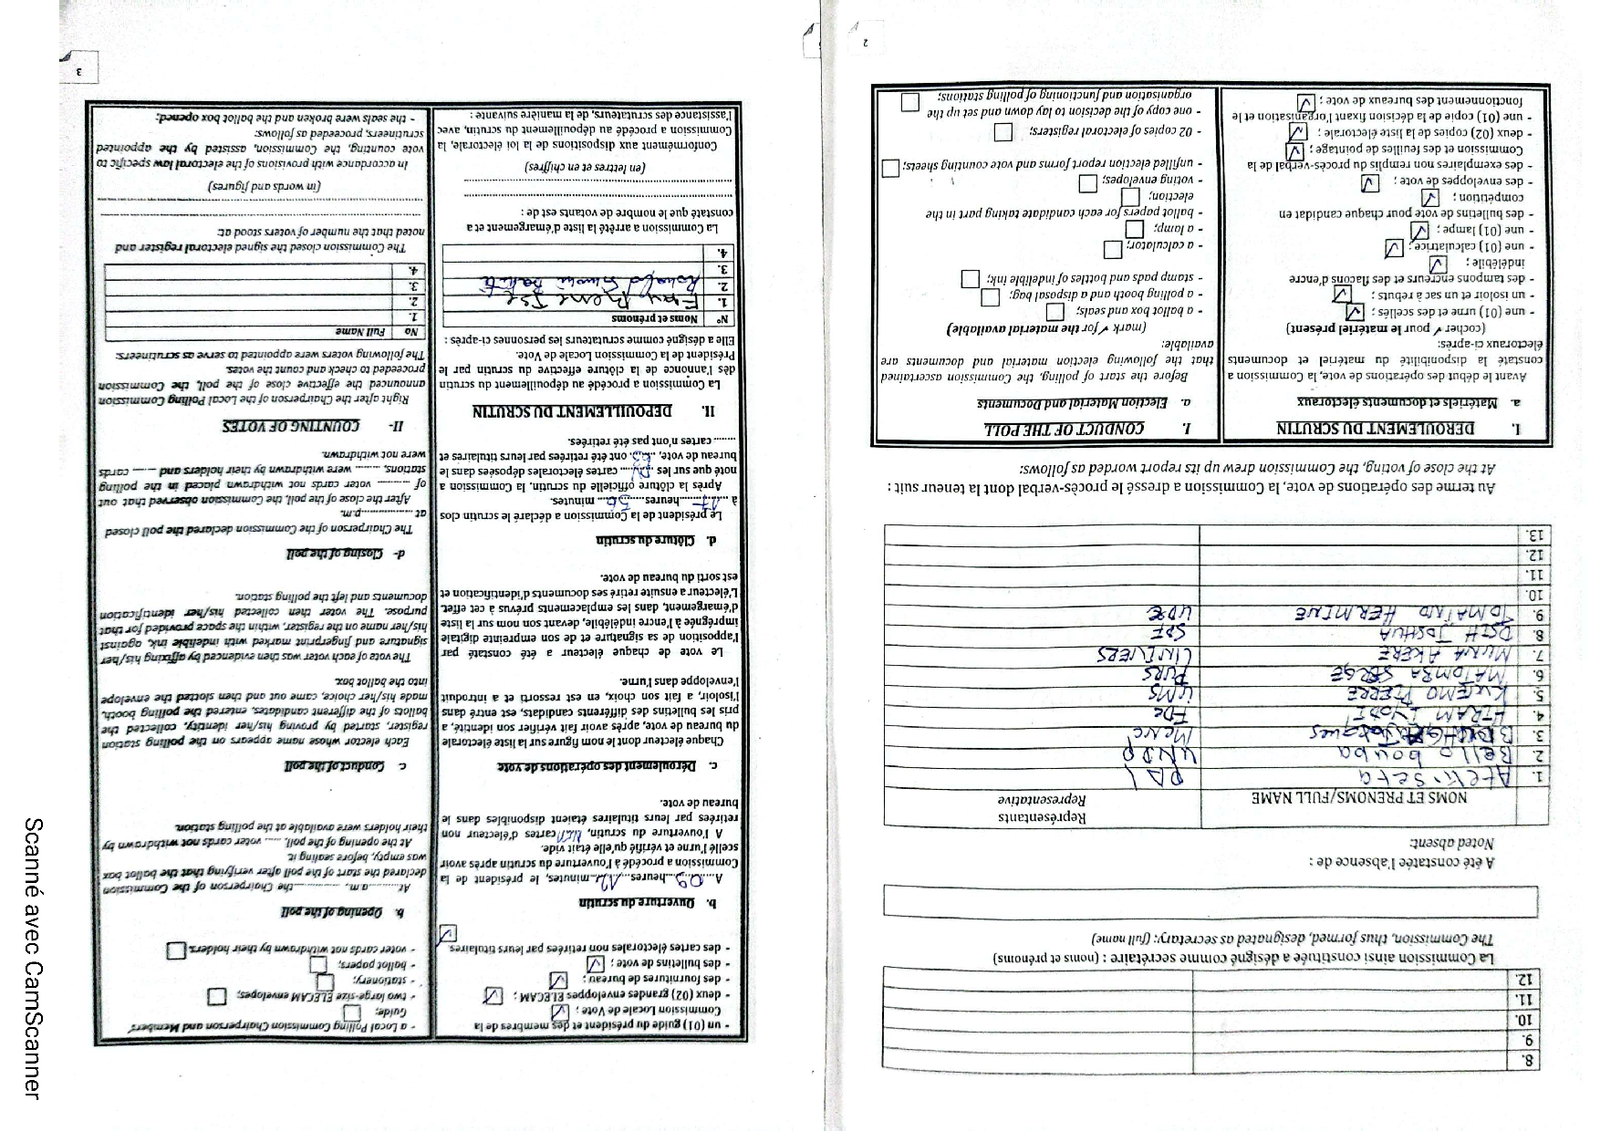 8.
9.
10.
11.
12.
La Commission ainsi constituée a désigné comme secrétaire : (noms et prénoms)
The Commission, thus formed, designated as secretary: (full name)
A été constatée l'absence de :
Noted absent:
NOMS ET PRENOMS/FULL NAME
Représentants
Representative
1.
2. Bello bouba UNDP
3.
4. HIRAM IYODI FDC
5. KWEMO PIERRE UMS
6. MATOMBA SERGE PURS
7. MUNA AKERE UNIVERS
8. OSIH JOSHUA SDF
9. TOMAINO HERMINE UDC
10.
11.
12.
13.
Au terme des opérations de vote, la Commission a dressé le procès-verbal dont la teneur suit :
At the close of voting, the Commission drew up its report worded as follows:
I. DEROULEMENT DU SCRUTIN
a. Matériels et documents électoraux
Avant le début des opérations de vote, la Commission a
constaté la disponibilité du matériel et documents
électoraux ci-après:
(cocher ✓ pour le matériel présent)
- une (01) urne et des scellés ;
- un isoloir et un sac à rebuts ;
- des tampons encreurs et des flacons d'encre
indélébile ;
- une (01) calculatrice ;
- une (01) lampe ;
- des bulletins de vote pour chaque candidat en
compétition ;
- des enveloppes de vote ;
- des exemplaires non remplis du procès-verbal de la
Commission et des feuilles de pointage ;
- deux (02) copies de la liste électorale ;
- une (01) copie de la décision fixant l'organisation et le
fonctionnement des bureaux de vote ;
I. CONDUCT OF THE POLL
a. Election Material and Documents
Before the start of polling, the Commission ascertained
that the following election material and documents are
available:
(mark ✓ for the material available)
- a ballot box and seals;
- a polling booth and a disposal bag;
- stamp pads and bottles of indelible ink;
- a calculator;
- a lamp;
- ballot papers for each candidate taking part in the
election;
- voting envelopes;
- unfilled election report forms and vote counting sheets;
- 02 copies of electoral registers;
- one copy of the decision to lay down and set up the
organisation and functioning of polling stations;
2
- un (01) guide du président et des membres de la
Commission Locale de Vote ;
- deux (02) grandes enveloppes ELECAM ;
- des fournitures de bureau ;
- des bulletins de vote ;
- des cartes électorales non retirées par leurs titulaires.
b. Ouverture du scrutin
A 09 heures 12 minutes, le président de la
Commission a procédé à l'ouverture du scrutin après avoir
scellé l'urne et vérifié qu'elle était vide.
A l'ouverture du scrutin, cartes d'électeur non
retirées par leurs titulaires étaient disponibles dans le
bureau de vote.
c. Déroulement des opérations de vote
Chaque électeur dont le nom figure sur la liste électorale
du bureau de vote, après avoir fait vérifier son identité, a
pris les bulletins des différents candidats, est entré dans
l'isoloir, a fait son choix, en est ressorti et a introduit
l'enveloppe dans l'urne.
Le vote de chaque électeur a été constaté par
l'apposition de sa signature et de son empreinte digitale
imprégnée à l'encre indélébile, devant son nom sur la liste
d'émargement, dans les emplacements prévus à cet effet.
L'électeur a ensuite retiré ses documents d'identification et
est sorti du bureau de vote.
d. Clôture du scrutin
Le président de la Commission a déclaré le scrutin clos
à 17 heures minutes.
Après la clôture officielle du scrutin, la Commission a
noté que sur les cartes électorales déposées dans le
bureau de vote, ont été retirées par leurs titulaires et
........ cartes n'ont pas été retirées.
II. DEPOUILLEMENT DU SCRUTIN
La Commission a procédé au dépouillement du scrutin
dès l'annonce de la clôture effective du scrutin par le
Président de la Commission Locale de Vote.
Elle a désigné comme scrutateurs les personnes ci-après :
N° Noms et prénoms
1.
2.
3.
4.
La Commission a arrêté la liste d'émargement et a
constaté que le nombre de votants est de :
(en lettres et en chiffres)
Conformément aux dispositions de la loi électorale, la
Commission a procédé au dépouillement du scrutin, avec
l'assistance des scrutateurs, de la manière suivante :
- a Local Polling Commission Chairperson and Members'
Guide;
- two large-size ELECAM envelopes;
- stationery;
- ballot papers;
- voter cards not withdrawn by their holders.
b. Opening of the poll
At..........a.m, ............the Chairperson of the Commission
declared the start of the poll after verifying that the ballot box
was empty, before sealing it.
At the opening of the poll, ...... voter cards not withdrawn by
their holders were available at the polling station.
c. Conduct of the poll
Each elector whose name appears on the polling station
register, started by proving his/her identity, collected the
ballots of the different candidates, entered the polling booth,
made his/her choice, came out and then slotted the envelope
into the ballot box.
The vote of each voter was then evidenced by affixing his/her
signature and fingerprint marked with indelible ink, against
his/her name on the register, within the space provided for that
purpose. The voter then collected his/her identification
documents and left the polling station.
d- Closing of the poll
The Chairperson of the Commission declared the poll closed
at ................p.m.
After the close of the poll, the Commission observed that out
of ........ voter cards not withdrawn placed in the polling
stations, ........ were withdrawn by their holders and ...... cards
were not withdrawn.
II- COUNTING OF VOTES
Right after the Chairperson of the Local Polling Commission
announced the effective close of the poll, the Commission
proceeded to check and count the votes.
The following voters were appointed to serve as scrutineers:
No Full Name
1.
2.
3.
4.
The Commission closed the signed electoral register and
noted that the number of voters stood at:
(in words and figures)
In accordance with provisions of the electoral law specific to
vote counting, the Commission, assisted by the appointed
scrutineers, proceeded as follows:
- the seals were broken and the ballot box opened;
3
Scanné avec CamScanner